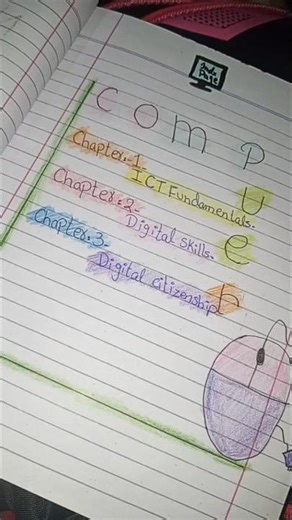 C O M P
U
e
Chapter:-1
ICT Fundamentals.
Chapter:2-
Digital Skills.
Chapter:3-
Digital citizenship